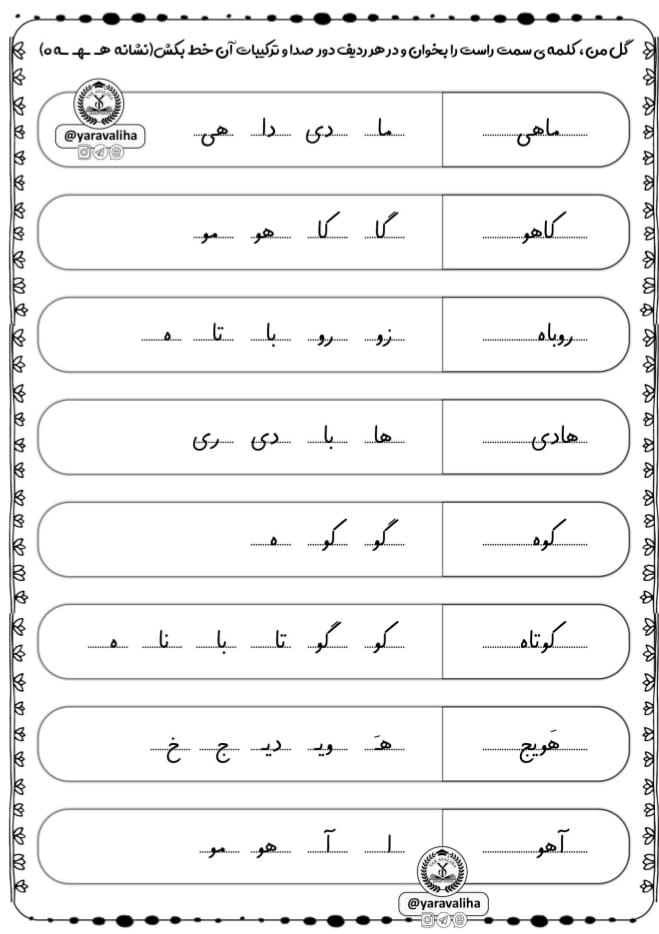 گل من، کلمه ی سمت راست را بخوان و در هر ردیف دور صدا و ترکیبات آن خط بکش(نشانه هـ ـهـ ـه ه)
ماهی ما دی دا هی
@yaravaliha
کاهو گا کا هو مو
روباه زو رو با تا ه
هادی ها با دی ری
کوه گو کو ه
کوتاه کو گو تا با نا ه
هَویج هـَ ویـ دیـ ج خ
آهو ا آ هو مو
@yaravaliha